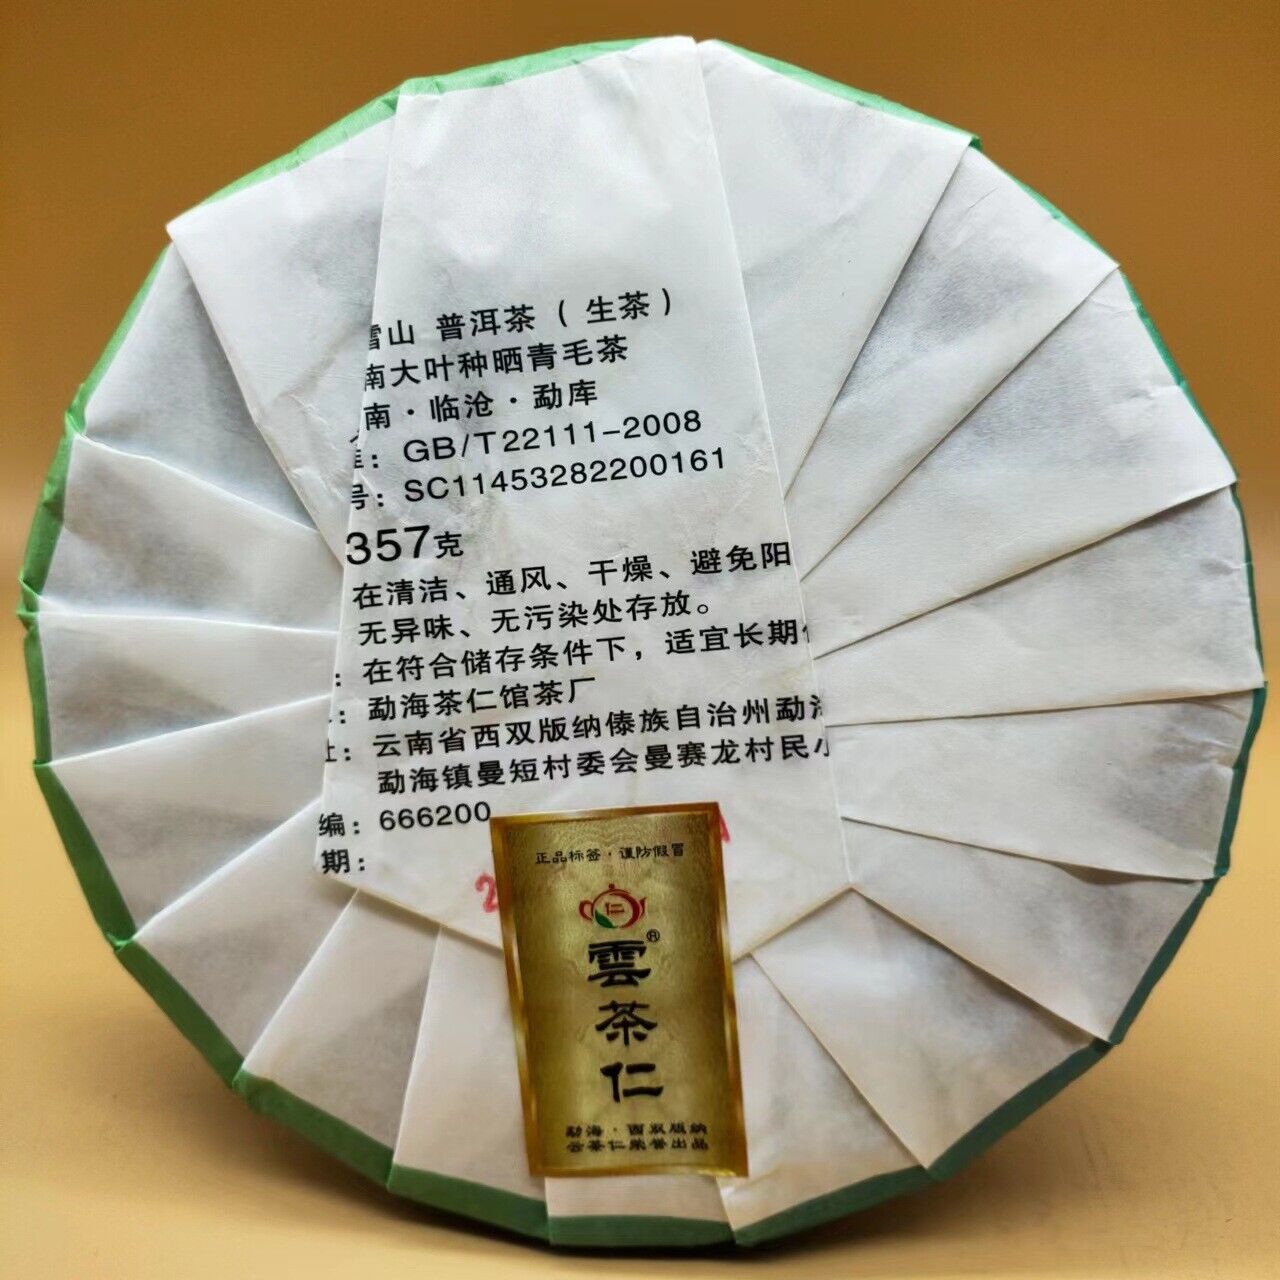 雪山 普洱茶（生茶）
南大叶种晒青毛茶
南·临沧·勐库
准：GB/T22111-2008
号：SC11453282200161
357克
在清洁、通风、干燥、避免阳
无异味、无污染处存放。
：在符合储存条件下，适宜长期
：勐海茶仁馆茶厂
址：云南省西双版纳傣族自治州勐海
勐海镇曼短村委会曼赛龙村民小
编：666200
期：
2
正品标签·谨防假冒
仁
雲®
茶
仁
勐海·西双版纳
云茶仁荣誉出品